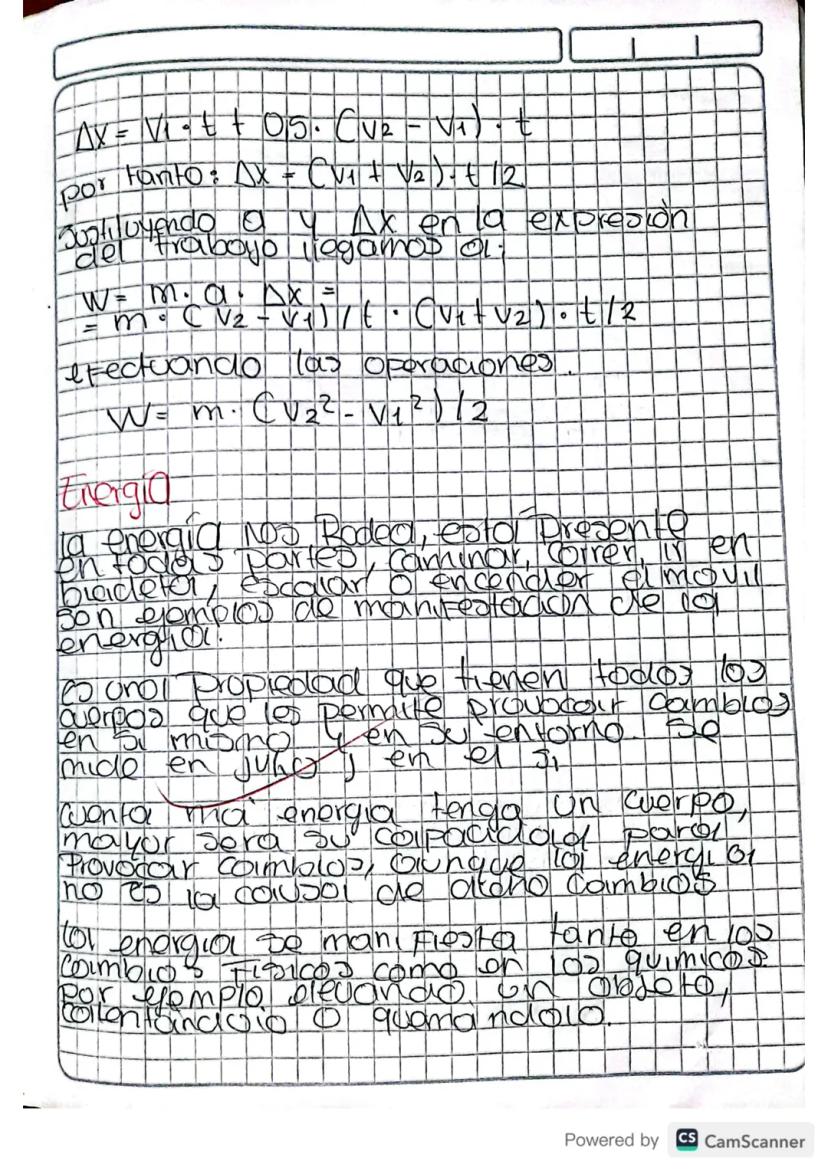 Δx = v1 · t + 0,5 · (v2 - v1) · t
por tanto: Δx = (v1 + v2) · t / 2
sustiluyendo a y Δx en la expresión
del trabajo llegamos a:
W= m · a · Δx =
= m · (v2 - v1) / t · (v1 + v2) · t / 2
efectuando las operaciones.
W= m · (v2² - v1²) / 2
Energia
la energía nos Rodea, esta Presente
en todas partes, caminar, correr, ir en
bicicleta, escalar o encender el movil
son ejemplos de manifestacion de la
energia.
es una Propiedad que tienen todos los
cuerpos que les permite provocar cambios
en si mismo y en su entorno. Se
mide en julios j en el si
cuenta ma energia tenga un cuerpo,
mayor sera su capacidad para
Provocar cambios, aunque la energia
no es la causa de cambios
la energia se manifiesta tanto en los
cambios Fisicos como en los quimicos.
por ejemplo elevando un objeto,
calentandolo o quemandolo.
Powered by CS CamScanner